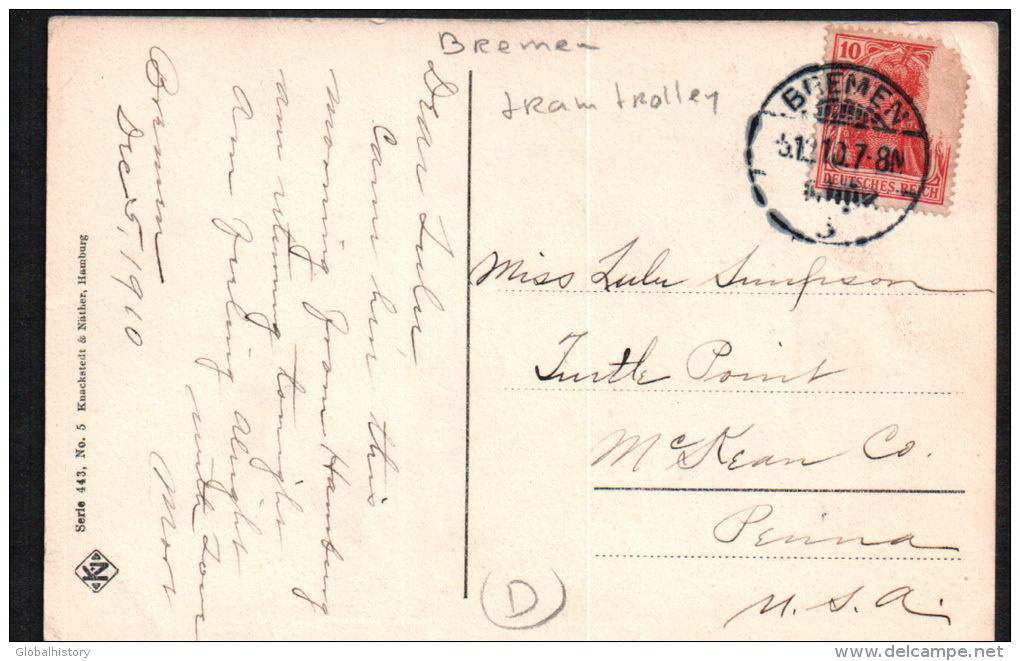 Bremen
tram trolley
10
DEUTSCHES REICH
BREMEN
5.12.10.7-8N
Miss Lulu Simpson
Turtle Point
McKean Co.
Penna
U.S.A.
D
Bremen
Dec 5, 1910
Dear Lulu,
Came here this
morning from Hamburg
am returning tonight
Am feeling alright
with love
Serie 443, No. 5 Knackstedt & Näther, Hamburg
Globalhistory
delcampe.net